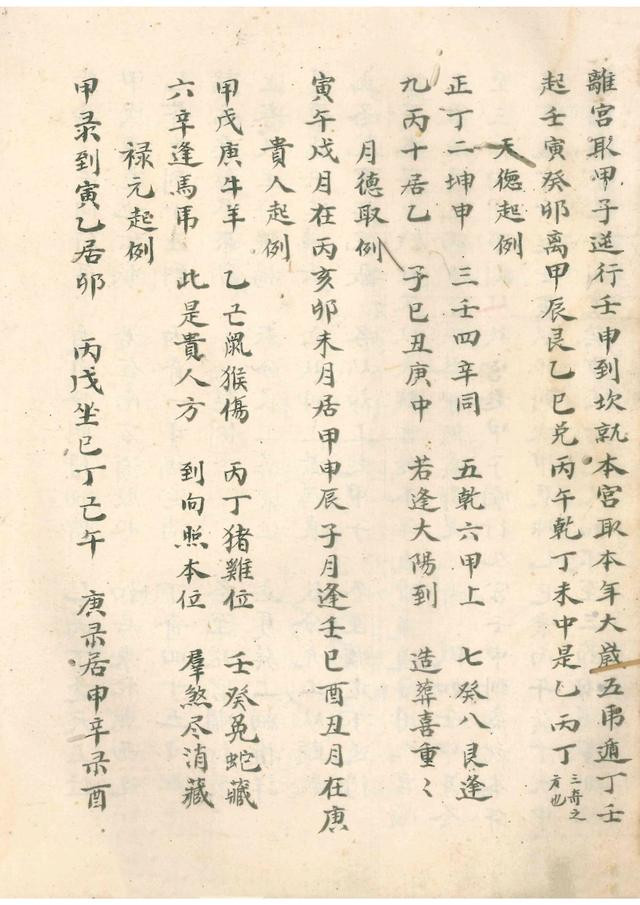 離宮取甲子逆行壬申到坎就本宮取本年大歲五帍遁丁壬
起壬寅癸卯离甲辰艮乙巳兑丙午乾丁未中是乙丙丁三奇之方也
天德起例
正丁二坤申 三壬四辛同 五乾六甲上 七癸八艮逢
九丙十居乙 子巳丑庚中 若逢大陽到 造葬喜重〻
月德取例
寅午戍月在丙亥卯未月居甲申辰子月逢壬巳酉丑月在庚
貴人起例
甲戊庚牛羊 乙己鼠猴傷 丙丁猪雞位 壬癸兔蛇藏
六辛逢馬帍 此是貴人方 到向照本位 羣煞尽消藏
禄元起例
甲录到寅乙居卯 丙戊坐巳丁己午 庚录居申辛录酉